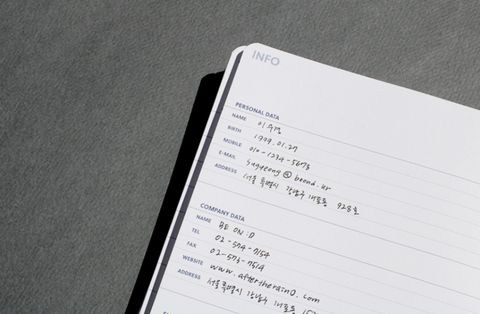 INFO
PERSONAL DATA
NAME 이수경
BIRTH 1979.01.27
MOBILE 010-1234-5678
E-MAIL @ beond.kr
ADDRESS 서울특별시 강남구 928호
COMPANY DATA
NAME BE ON D
TEL 02-574-7154
FAX 02-573-7514
WEBSITE www.aftertherain0.com
ADDRESS 서울특별시 강남구